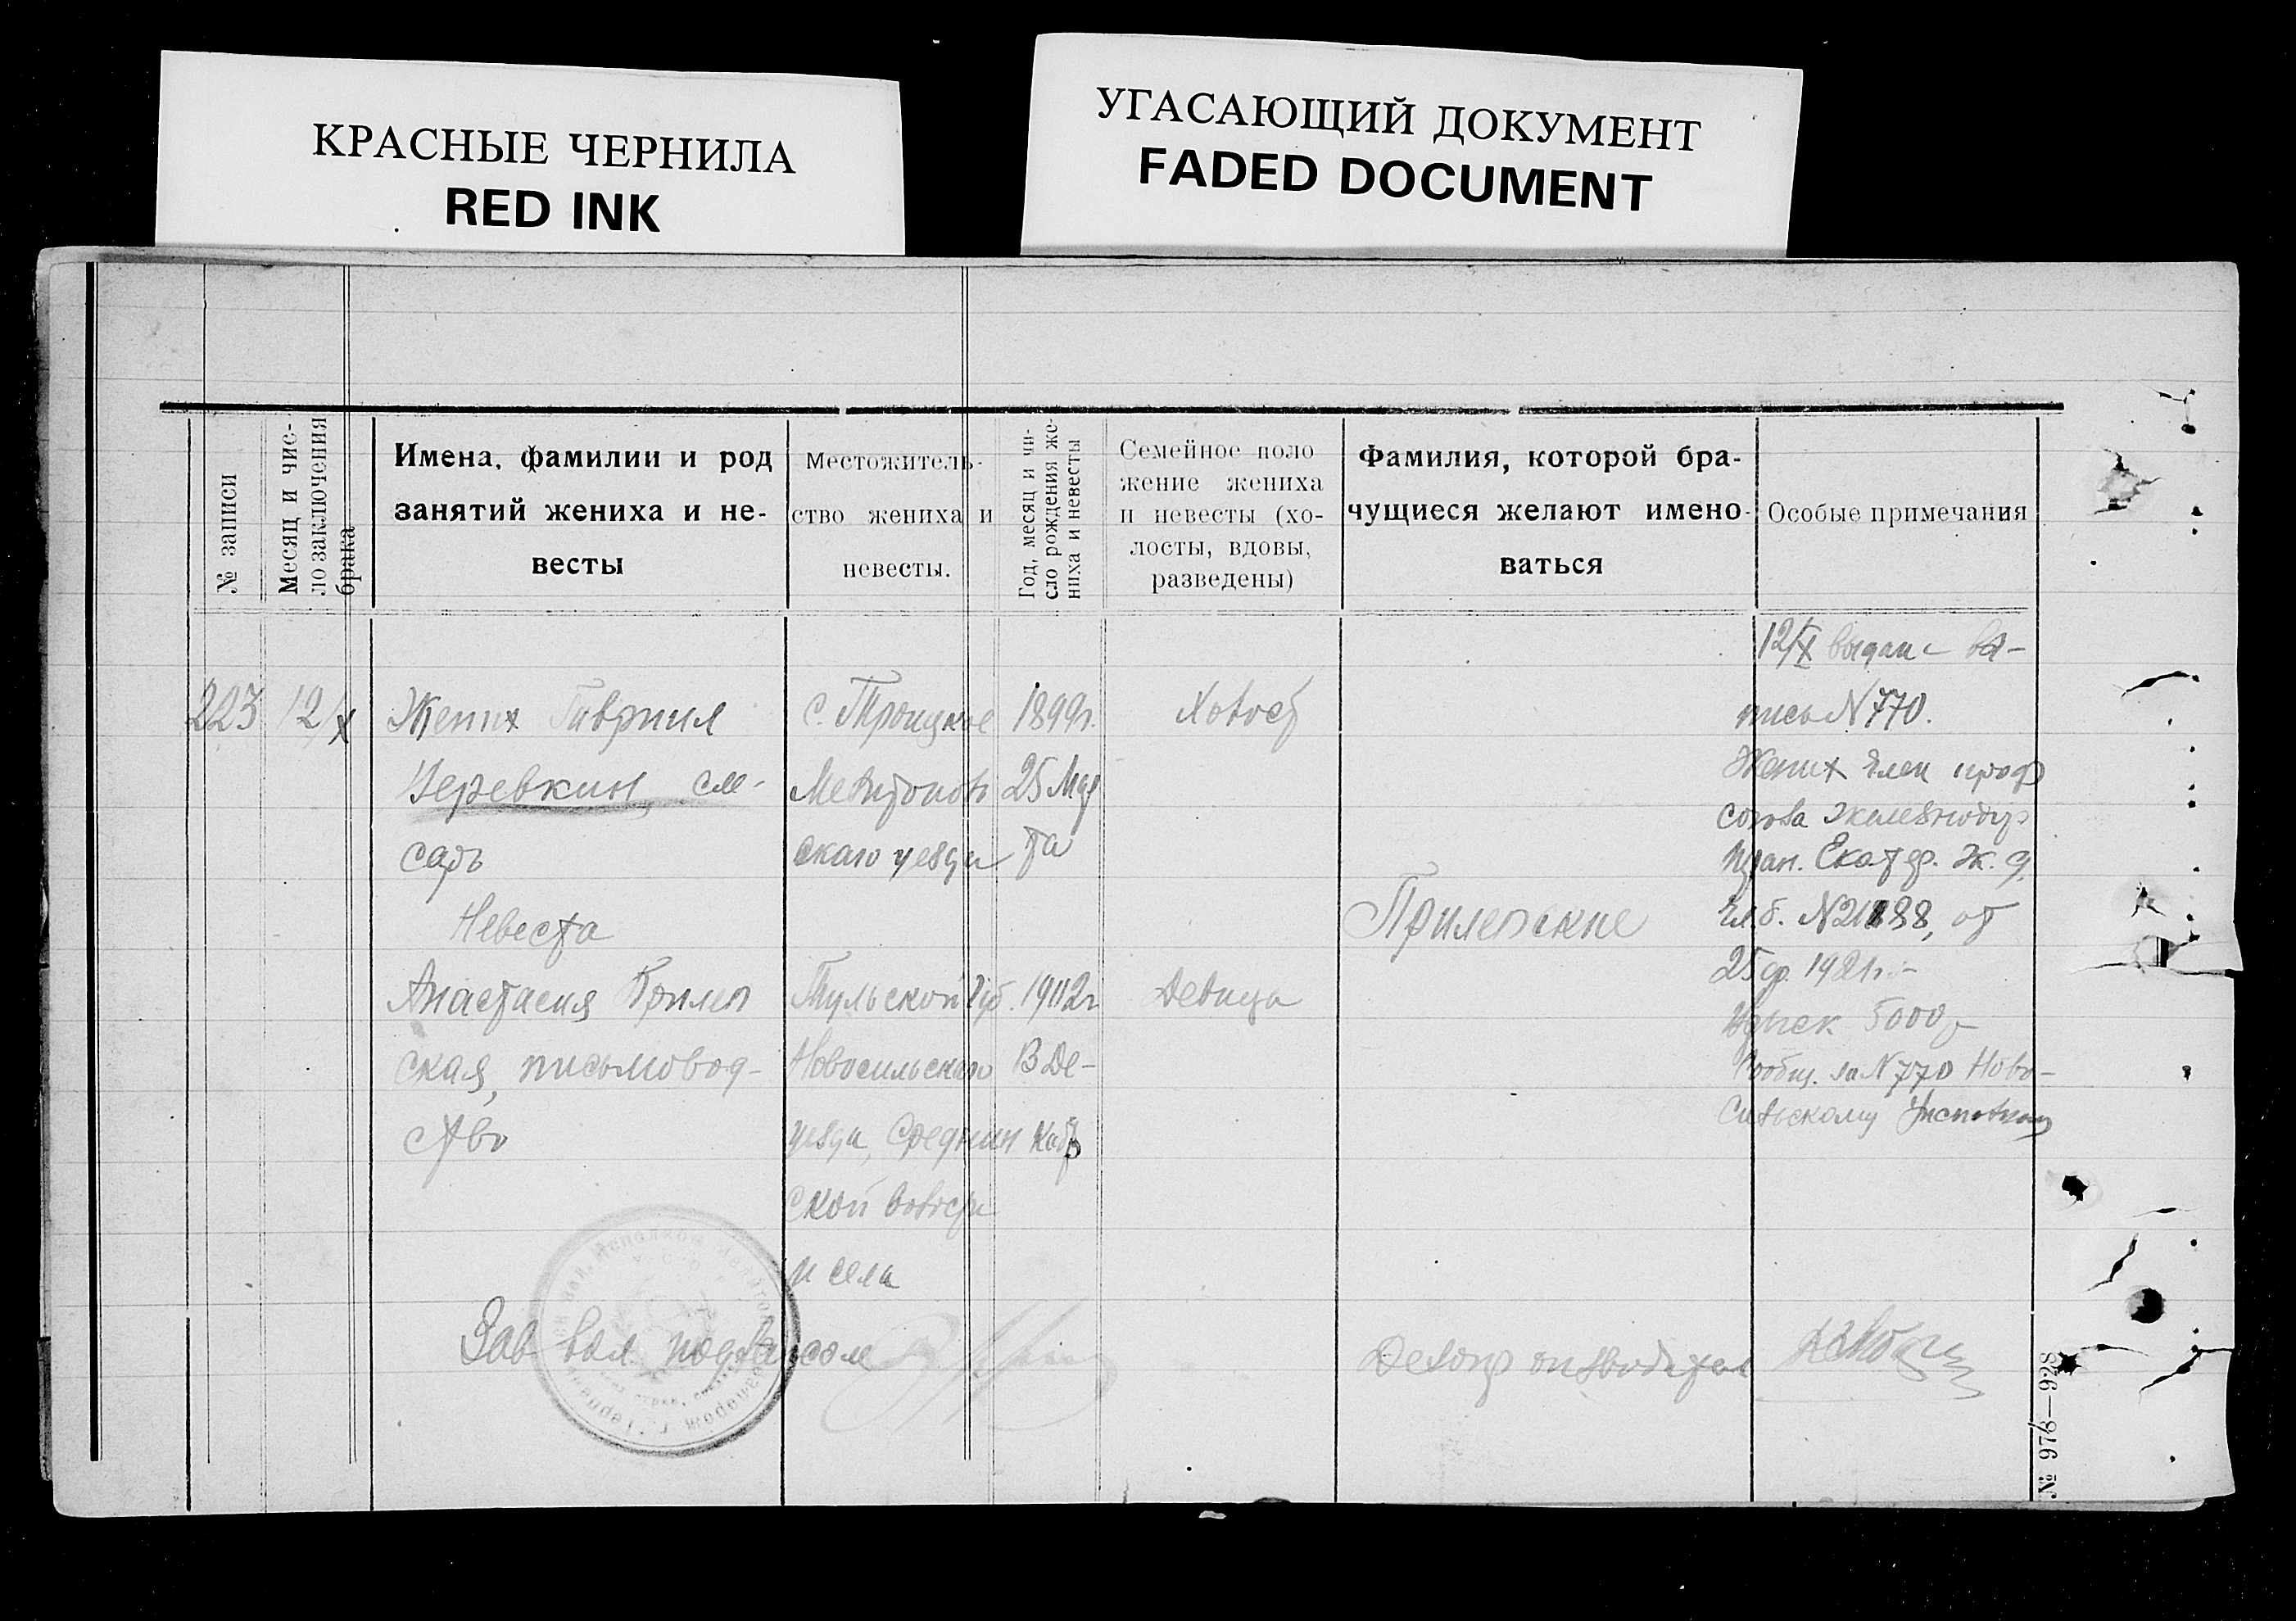 КРАСНЫЕ ЧЕРНИЛА
RED INK
УГАСАЮЩИЙ ДОКУМЕНТ
FADED DOCUMENT
№ записи
Месяц и чис-
ло заключения
брака
Имена, фамилии и род
занятий жениха и не-
весты
Местожитель-
ство жениха и
невесты.
Год, месяц и чи-
сло рождения же-
ниха и невесты
Семейное поло
жение жениха
и невесты (хо-
лосты, вдовы,
разведены)
Фамилия, которой бра-
чущиеся желают имено-
ваться
Особые примечания
223
12/X
Жених Гавриил
Черевкин, сле-
сарь
Невеста
Анастасия Прилеп
ская, письмовод-
ство
с. Троицкое
Мелитополь
скаго уезда
Тульской губ.
Новосильскаго
уезда, Среднин
ской волости
и села
1899г.
25 Мар
та
1902г
13 Де-
кабр
Холост
Девица
Прилепские
12/X выдана вы-
пись N 770.
Жених член проф
союза железнодор
Екатер. ж. д.
чл. б. от
25 1921г.-
5000р
Сообщ. за N 770 Ново-
сильскому
Зав. подзагсом
Делопроизводител
№ 916—928